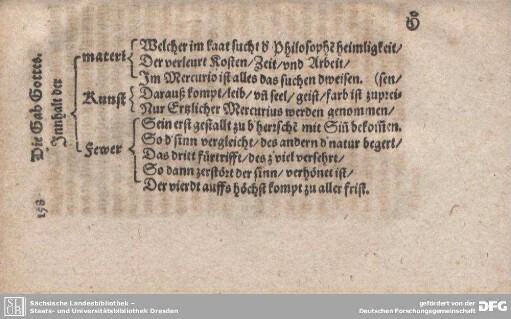 158
Die Gab Gottes.
Jnnhalt der
materi
Welcher im kaat sucht ď Philosophẽ heimligkeit/
Der verleurt Kosten/Zeit/vnd Arbeit/
Jm Mercurio ist alles das suchen dweisen. (sen/
Kunst
Darauß kompt/leib/ vñ seel/ geist/farb ist zuprei-
Nur Ertzlicher Mercurius werden genommen/
Fewer
Sein erst gestallt zu ď herrschẽ mit Siñ bekom̃en.
So d'sinn vergleicht/des andern d'natur begert/
Das dritt fürtrifft/des z'viel versehrt/
So dann zerstört der sinn/verhönet ist/
Der vierdt auffs höchst kompt zu aller frist.
SLUB
Sächsische Landesbibliothek –
Staats- und Universitätsbibliothek Dresden
gefördert von der
Deutschen Forschungsgemeinschaft
DFG